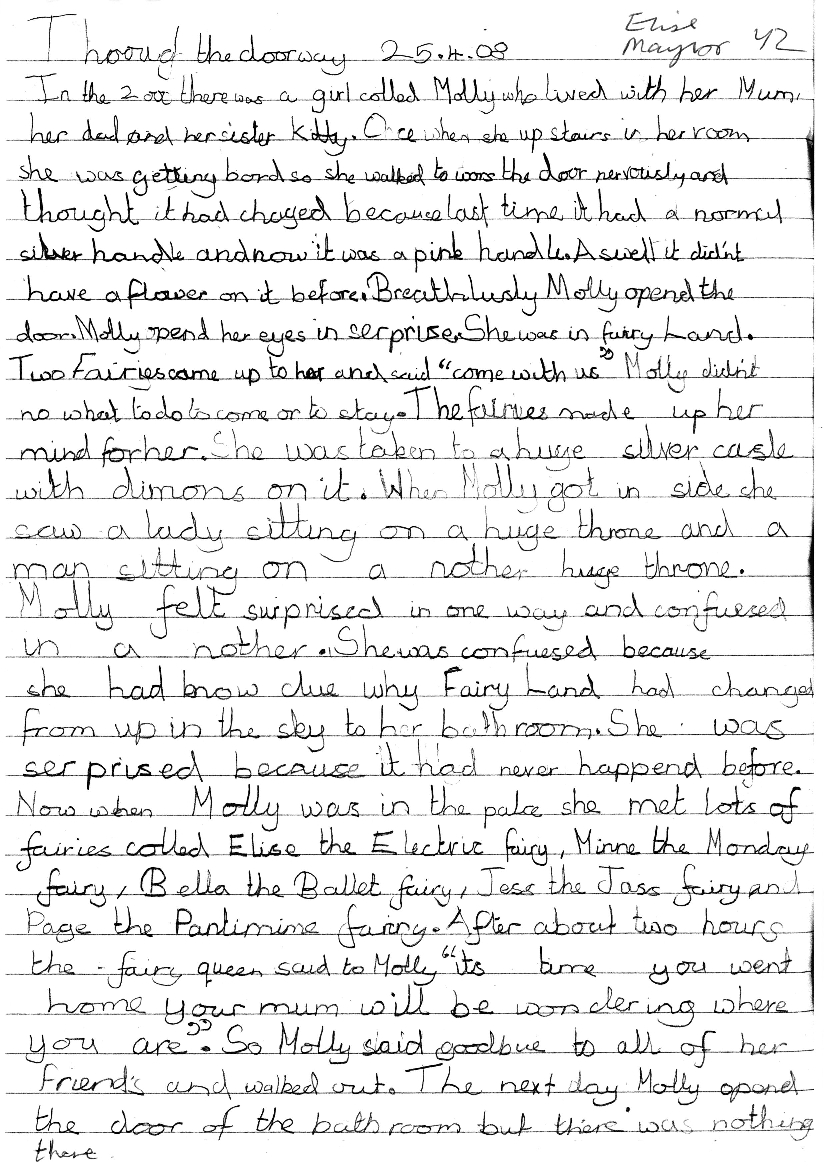 Thooug the doorway 25.4.08
Elise
Maynor 42
In the 200c there was a girl called Molly who lived with her Mum,
her dad and her sister Kitty. Once when she up stairs in her room
she was getting bord so she walked to wors the door nervously and
thought it had chaged because last time it had a normal
silver handle and now it was a pink handle. Aswell it did'nt
have a flower on it before. Breathlusly Molly opend the
door. Molly opend her eyes in serprise. She was in fairy Land.
Two Fairies came up to her and said "come with us" Molly did'nt
no what to do to come or to stay. The fairies made up her
mind for her. She was taken to a huge silver casle
with dimons on it. When Molly got in side she
saw a lady sitting on a huge throne and a
man sitting on a nother huge throne.
Molly felt surprised in one way and confuesed
in a nother. She was confuesed because
she had know clue why Fairy Land had changed
from up in the sky to her bathroom. She was
serprised because it had never happend before.
Now when Molly was in the palce she met lots of
fairies called Elise the Electric fairy, Minne the Monday
fairy, Bella the Ballet fairy, Jess the Jass fairy and
Page the Pantimine fairy. After about two hours
the fairy queen said to Molly "its time you went
home your mum will be wondering where
you are". So Molly said goodbue to all of her
friends and walked out. The next day Molly opend
the door of the bathroom but there was nothing
there.